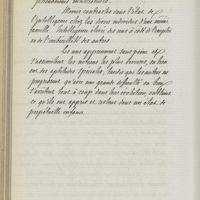 Mêmes contrastes dans l'état de
l'intelligence chez les divers individus d'une même
famille. Intelligence élevée des uns à côté de l'ineptie
ou de l'imbécillité des autres.
Les uns apprennent sans peine et
s'assimilent les notions les plus diverses, ou bien
ont des aptitudes spéciales, tandis que les autres ne
progressent qu'avec une grande difficulté ou bien
s'arrêtent tout à coup dans leur évolution, oublient
ce qu'ils ont appris et restent dans un état de
perpétuelle enfance.